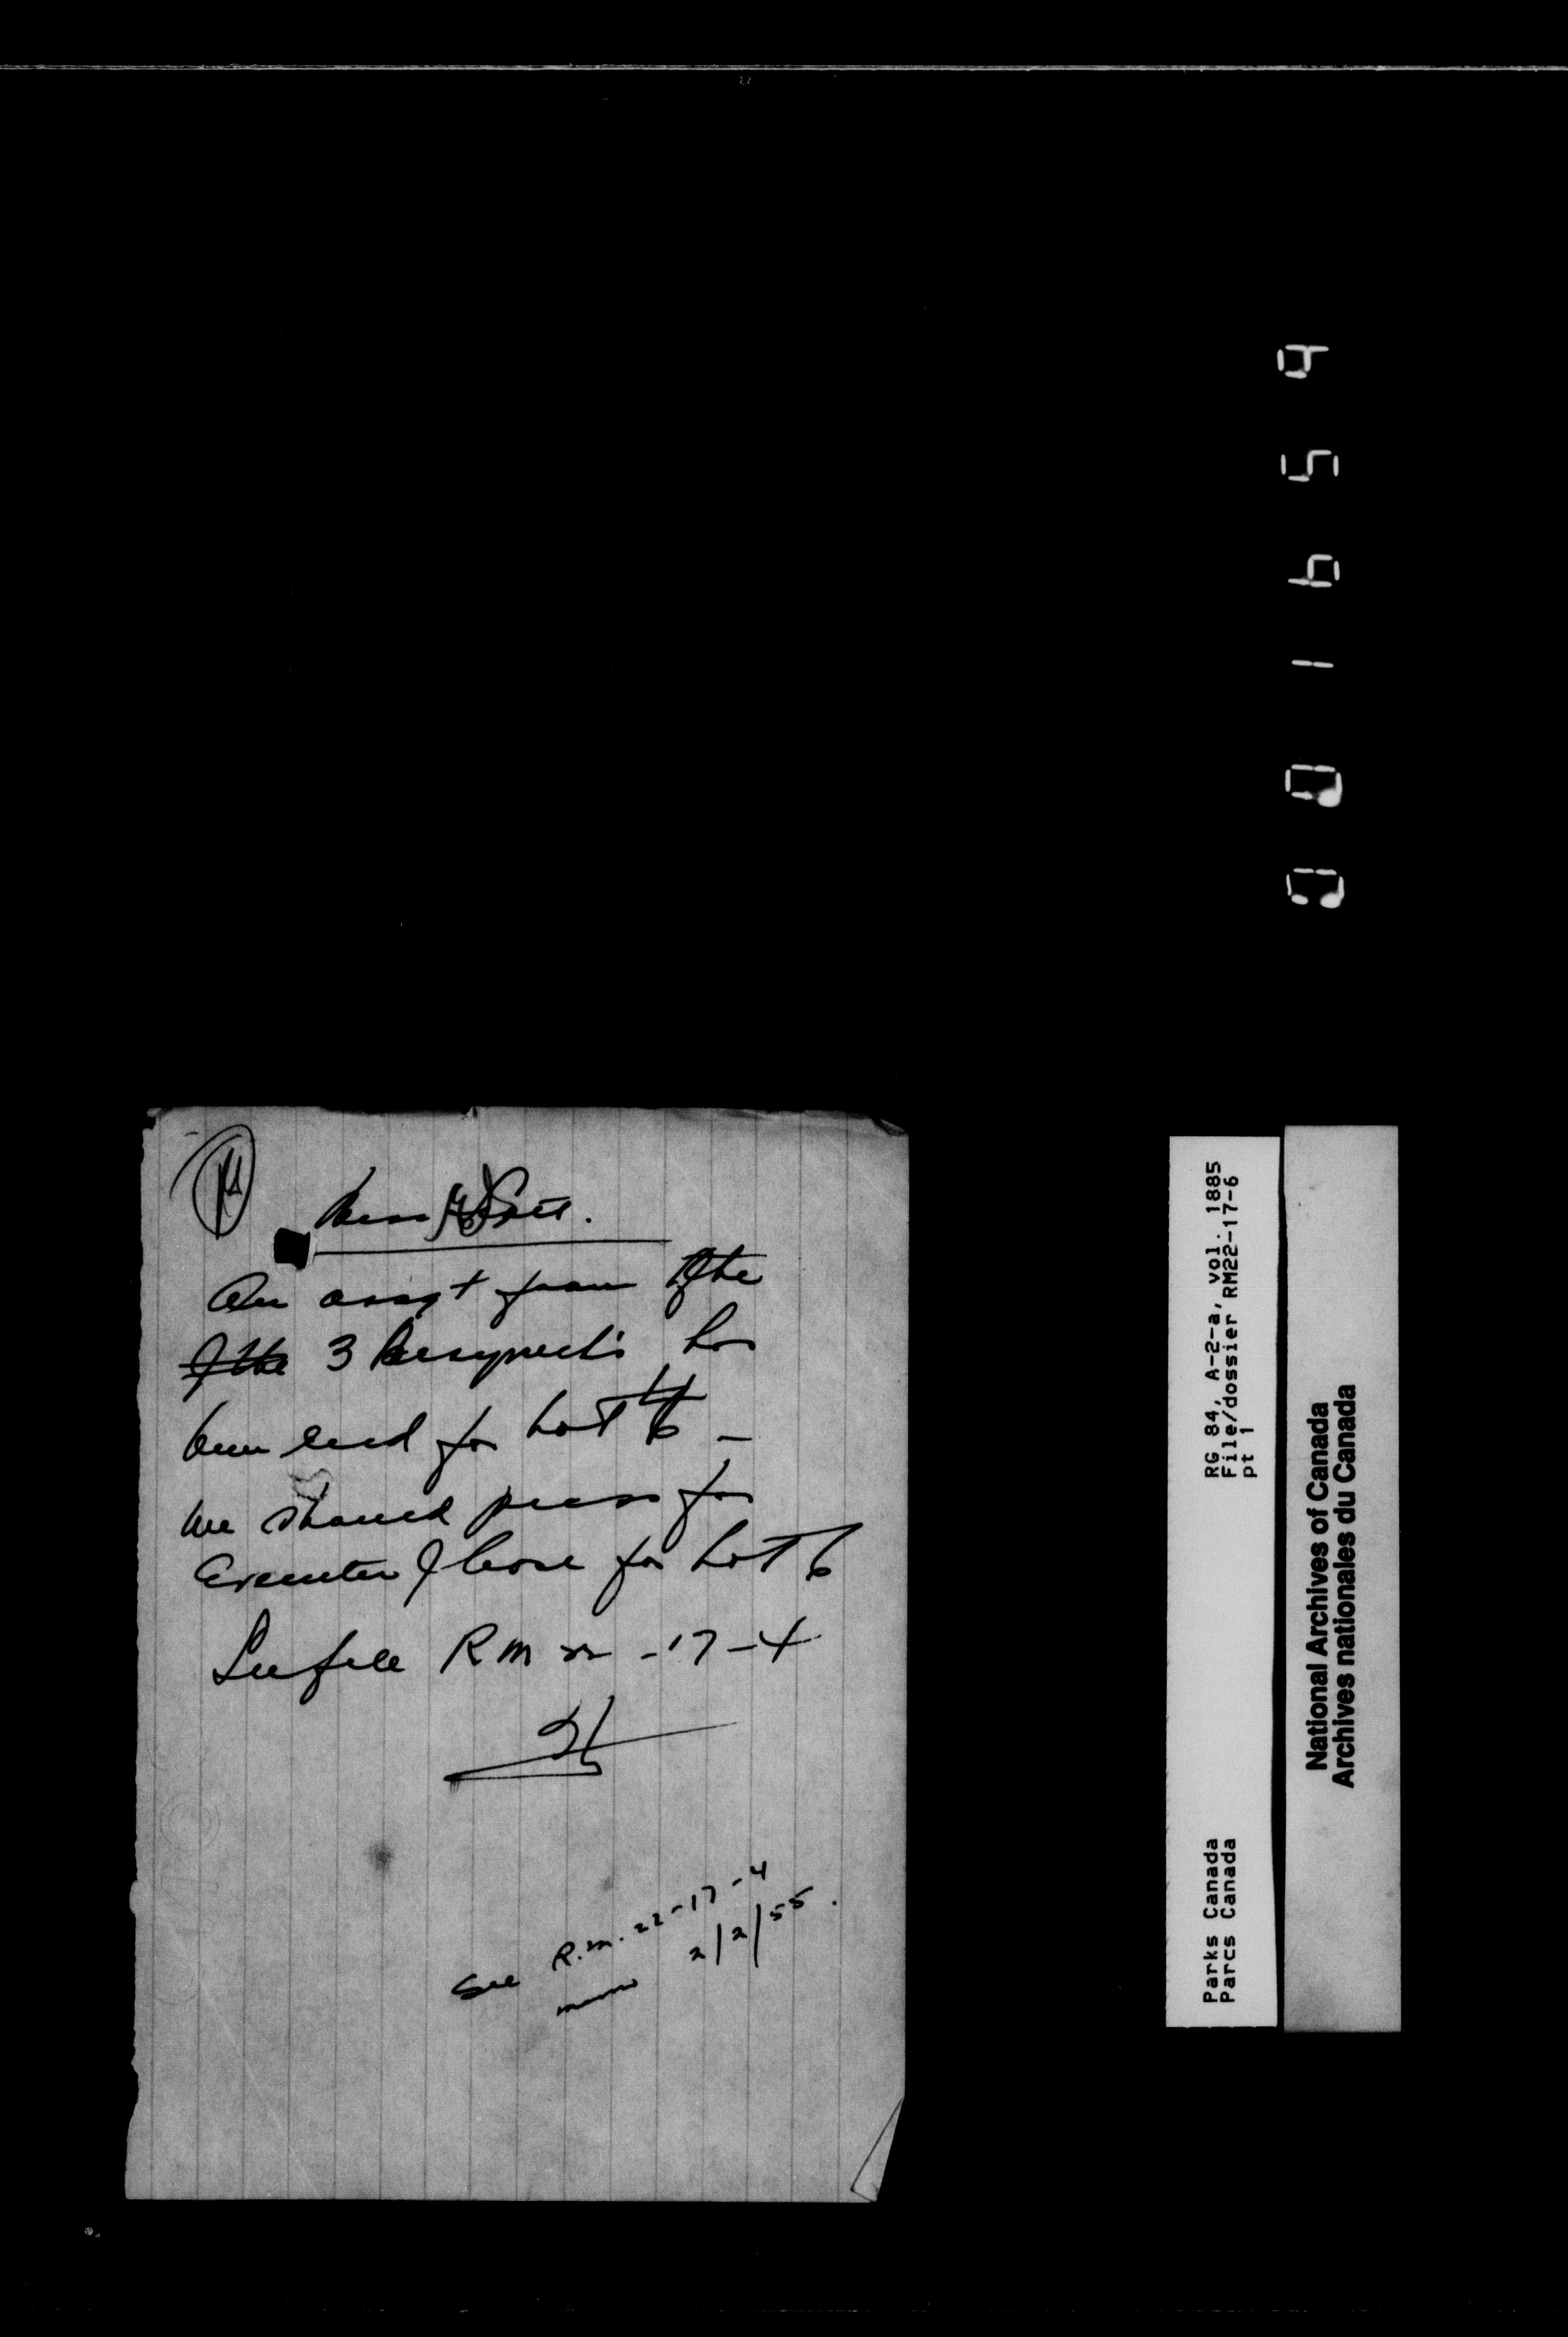 Miss
An assgt from the
of the 3 has
been secd for Lot 6 -
We should press for
Execution of lease for Lot 6
See file RM 22-17-4
See R.M. 22-17-4
memo 2/2/55.
RG 84, A-2-a, vol. 1885
File/dossier RM22-17-6
pt 1
Parks Canada
Parcs Canada
National Archives of Canada
Archives nationales du Canada